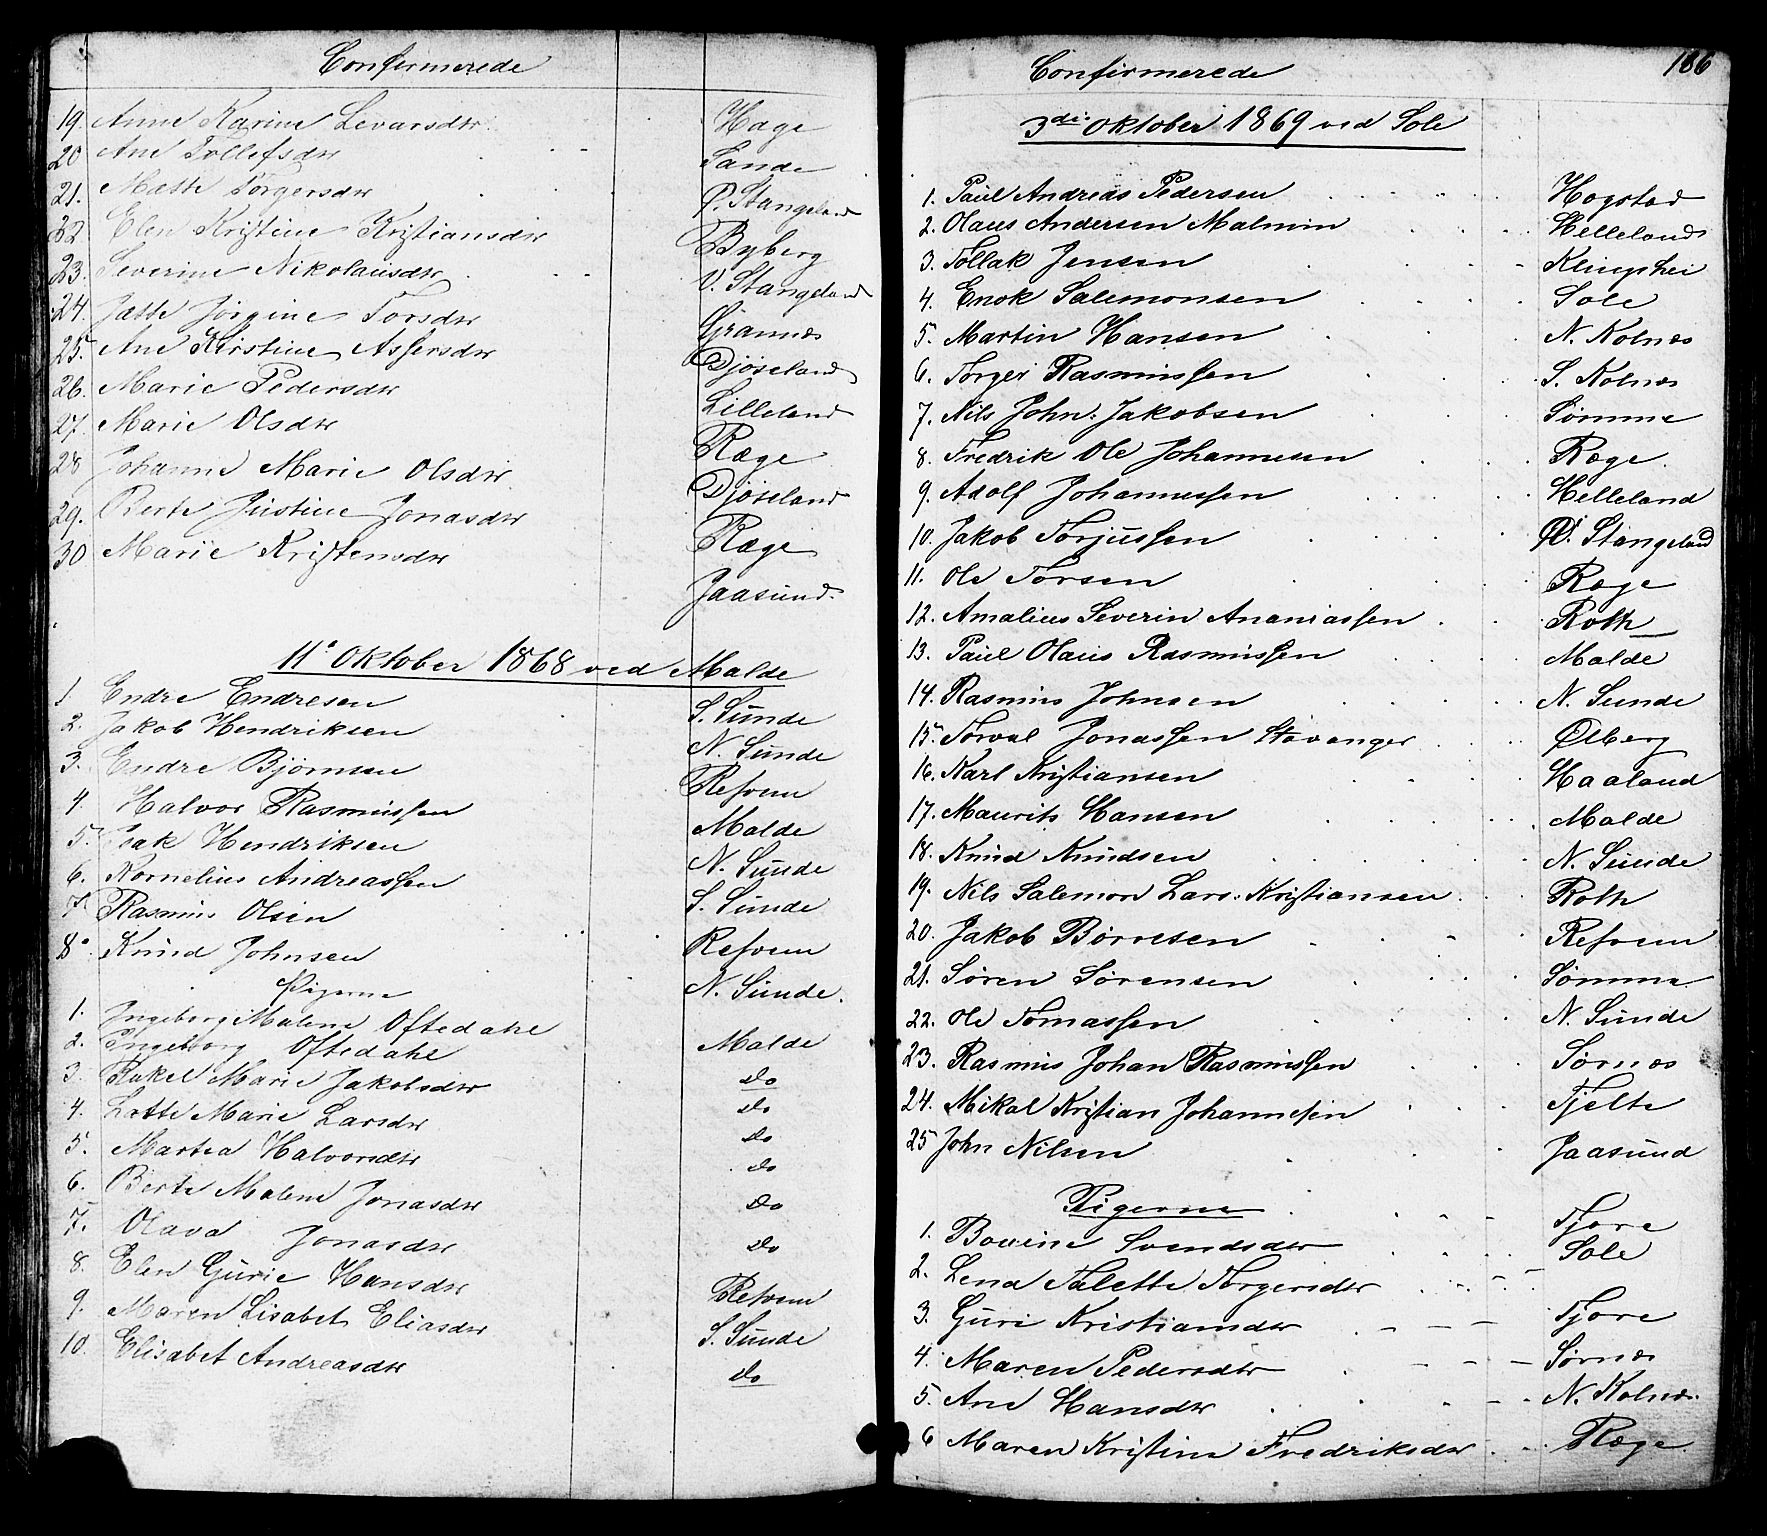 Confirmerede
19. Anne Karine Levarsdtr. Hage
20 Ane Tollefsdtr Sande
21. Mætte Torgersdtr Ø. Stangeland
22 Elen Kristine Kristiansdtr Byberg
23. Severine Nikolausdtr V. Stangeland
24. Jætte Jørgine Torsdtr Grannes
25. Ane Kirstine Assersdtr Djøseland
26. Marie Pedersdtr Lilleland
27. Marie Olsdtr Ræge
28 Johanne Marie Olsdtr Djøseland
29. Berte Justine Jonasdtr Ræge
30 Marie Kristensdtr Jaasund.
11º Oktober 1868 ved Malde
1 Endre Endresen S. Sunde
2. Jakob Hendriksen N. Sunde
3. Endre Bjørnsen Refvem
4. Halvor Rasmussen Malde
5. Isak Hendriksen N. Sunde
6. Kornelius Andreassen S. Sunde
7. Rasmus Olsen Refvem
8. Knud Johnsen N. Sunde.
Pigerne
1. Ingeborg Malene Oftedahl Malde
2. Ingeborg Oftedahl do
3. Rakel Marie Jakobsdtr do
4. Lotte Marie Larsdtr do
5. Martea Halvorsdtr do
6. Berte Malene Jonasdtr do
7. Olava Jonasdtr do
8. Elen Gurie Hansdtr Refvem
9. Maren Lisabet Eliasdtr S. Sunde
10. Elisabet Andreasdtr do
Confirmerede 186
3die Oktober 1869 ved Sole
1. Paul Andreas Pedersen Hogstad
2. Olaus Andersen Malmin Helleland
3. Tollak Jensen Klingshei
4. Enok Salemonsen Sole
5. Martin Hansen N. Kolnes
6. Torger Rasmussen S. Kolnes
7. Nils John: Jakobsen Sømme
8. Fredrik Ole Johannesen Ræge.
9. Adolf Johannessen Helleland
10. Jakob Torjussen Ø. Stangeland
11. Ole Torsen Ræge
12. Amalius Severin Ananiassen Roth
13. Paul Olaus Rasmussen Malde
14. Rasmus Johnsen N. Sunde
15. Torval Jonassen Stavanger Ølberg
16. Karl Kristiansen Haaland
17. Maurits Hansen Malde
18. Knud Knudsen N. Sunde
19. Nils Salemon Lars: Kristiansen Roth
20. Jakob Børresen Refvem
21. Søren Sørensen Sømme
22. Ole Tomassen N. Sunde
23. Rasmus Johan Rasmussen Sørnes
24. Mikal Kristian Johannesen Tjelte
25 John Nilsen Jaasund
Pigerne
1. Bovine Svendsdtr Tjore
2. Lena Talette Torgersdtr Sole
3. Guri Kristiansdtr Tjore
4. Maren Pedersdtr Sørnes
5. Ane Hansdtr N. Kolnes.
6 Maren Kristine Fredriksdtr Ræge.